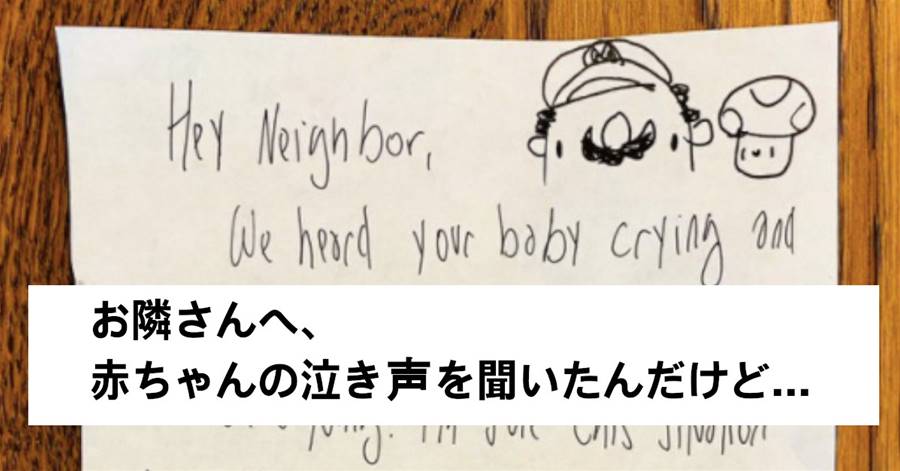 Hey Neighbor,
We heard your baby crying and
お隣さんへ、
赤ちゃんの泣き声を聞いたんだけど...
I'm sure this situation